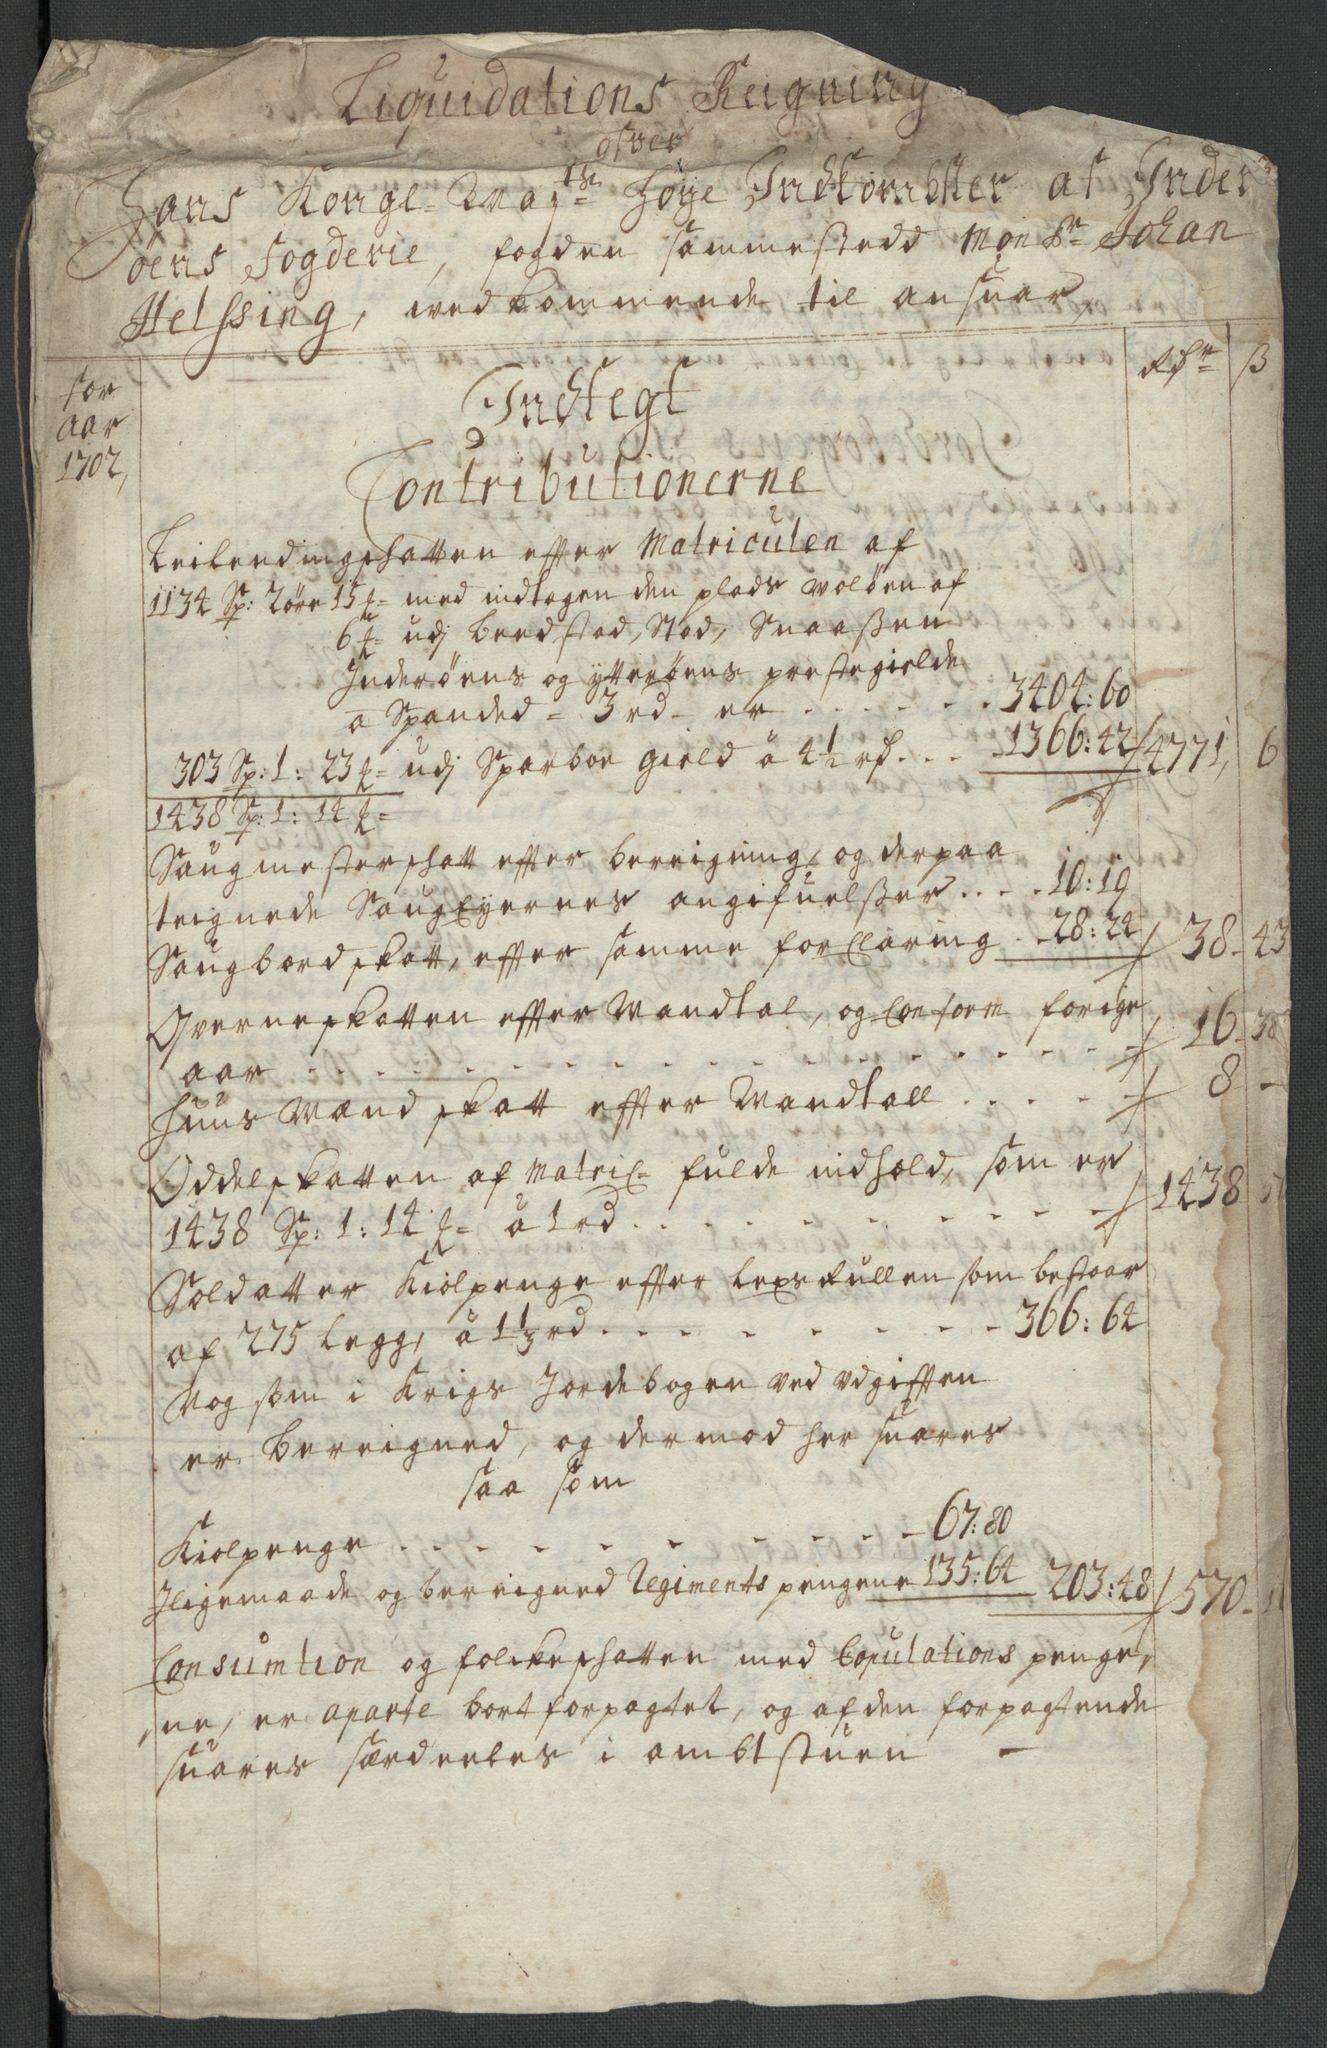 Liquidations Reigning
ofver
Hans Kongl. Mayts Höye Indkombster af Inder
öens Fogderie, fogden sammestedd Monsr Johan
Helssing, wedkommende til ansuar,
Rdr ß
for
aar
1702,
Indtegt
Contributionerne
Leilendingschatten effter Matriculen af
1134 Sp: 2 öre 15 = med indtagen den plads Wolöen af
6 = udj Beedstad, Stod, Snaaßen
Inderöens og ytteröens prestegielde
a Spanded = 3 rd er 3404:60
303 Sp: 1: 23 = udj Sparboe gield à 4½ rd... 1366:42 4771, 6
1438 Sp: 1: 14 =
Saugmesterschatt effter berreigning, og derpaa
teignede Saugeyernes angifuelßer.... 10:19
Saugbordskatt, effter samme forklaring 28:24 38 - 43
Qverneskatten effter Mandtal, og Conform forige
aar 16 - 38
Huusmænd skatt effter Mandtall 8 -
Oddelskatten af Matric fulde indhold, som er
1438 Sp: 1: 14 = à 1 rd 1438
Soldatter Kiolpenge effter legsrullen som bestaar
af 275 Legg, à 1⅓ rd 366:64
Nog som i Krigs Jordebogen ved udgifften
er berreigned, og dermod her suares
saa som
Kiolpenge 67:80
Jligemaade og berreigned Regiments pengene 135:64 203:48 570 -
Consumtion og folckeschatten med Copulations penge,
ne, er aparte bortforpagtet, og af den forpagtende
suares særdeeles i ambtstuen